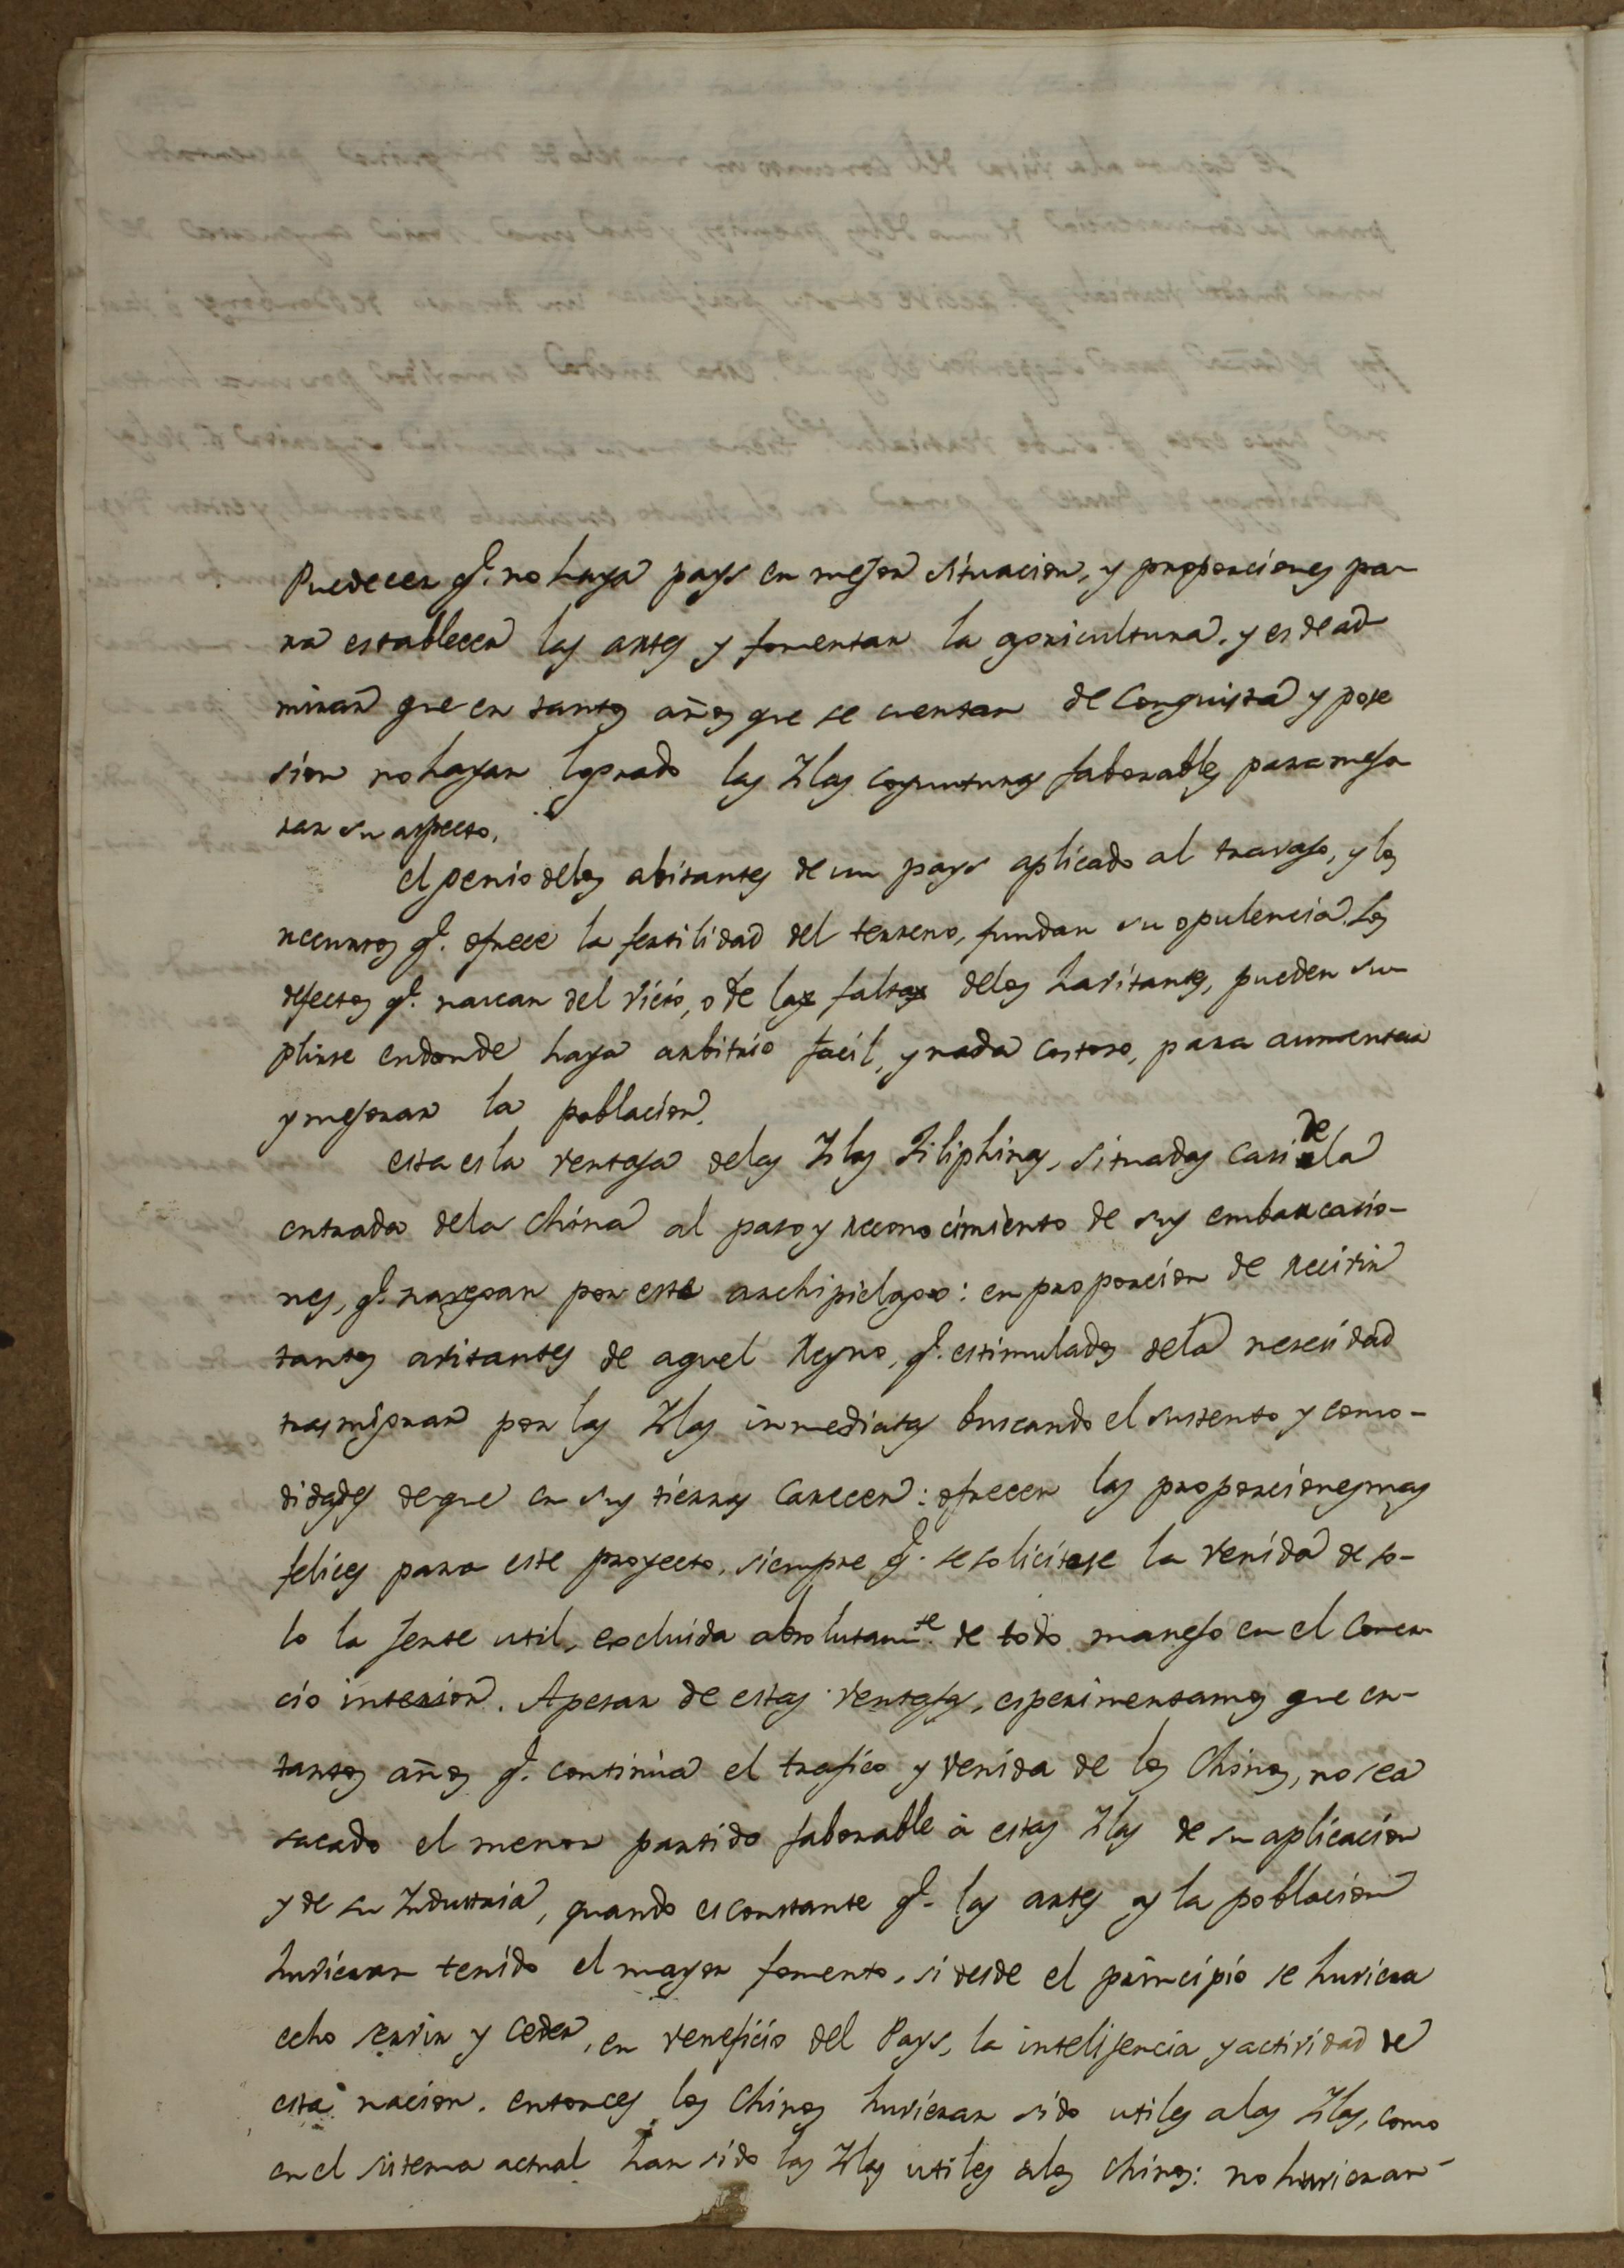 Puede ser q.e no haya pays en mejor situacion, y proporciones pa-
ra establecer las artes y fomentar la agricultura, y es de ad-
mirar que en tantos años que se cuentan de Conquista y pose
sion no hayan logrado las Yslas coyunturas faborables para mejo
rar su aspecto.
el genio delos abitantes de un pays aplicado al travajo, y los
recursos q.e ofrece la fertilidad del terreno, fundan su opulencia. Los
defectos q.e nascan del vicio, o de la falta delos havitantes, pueden su-
plirse endonde haya arbitrio facil, y nada costoso, para aumentar
y mejorar la poblacion.
esta es la ventaja delas Yslas Filiphinas, situadas casi de la
entrada dela China al paso y reconocimiento de sus embarcacio-
nes, q.e navegan por este archipielago: en proporcion de recivir
tantos avitantes de aquel Reyno, q.e estimulados dela nesesidad
trasmigran por las Yslas inmediatas buscando el sustento y como-
didades deque en sus tierras Carecen: ofrecen las proporciones mas
felices para este proyecto, siempre q.e se solicitase la venida de so-
lo la Jente util, excluida absolutam.te de todo manejo en el Comer
cio interior. Apesar de estas ventajas, esperimentamos que en-
tantos años q.e continúa el trafico y venida de los Chinos, no sea
sacado el menor partido faborable à estas Yslas de su aplicacion
y de su Yndustria, quando es constante q.e las artes y la poblacion
huvieran tenido el mayor fomento, si desde el principio se huviera
echo servir y Ceder, en veneficio del Pays, la intelijencia y actividad de
esta nacion. entonces los Chinos huvieran sido utiles alas Yslas, como
en el sistema actual han sido las Yslas utiles alos Chinos: no huvieran-